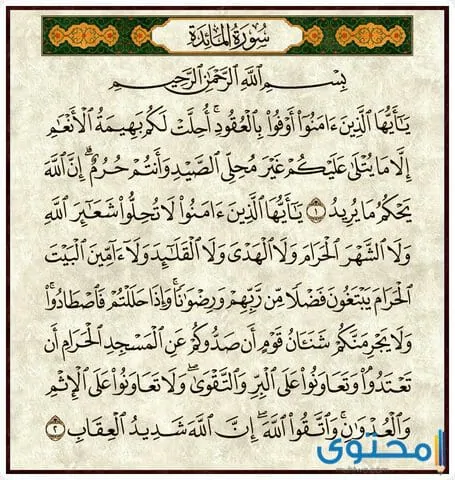 سُورَةُ المَائِدَةِ
بِسْمِ اللَّهِ الرَّحْمَٰنِ الرَّحِيمِ
يَٰٓأَيُّهَا الَّذِينَ ءَامَنُوٓا۟ أَوْفُوا۟ بِالْعُقُودِ ۚ أُحِلَّتْ لَكُم بَهِيمَةُ الْأَنْعَٰمِ
إِلَّا مَا يُتْلَىٰ عَلَيْكُمْ غَيْرَ مُحِلِّى الصَّيْدِ وَأَنتُمْ حُرُمٌ ۗ إِنَّ اللَّهَ
يَحْكُمُ مَا يُرِيدُ ١ يَٰٓأَيُّهَا الَّذِينَ ءَامَنُوا۟ لَا تُحِلُّوا۟ شَعَٰٓئِرَ اللَّهِ
وَلَا الشَّهْرَ الْحَرَامَ وَلَا الْهَدْىَ وَلَا الْقَلَٰٓئِدَ وَلَآ ءَآمِّينَ الْبَيْتَ
الْحَرَامَ يَبْتَغُونَ فَضْلًا مِّن رَّبِّهِمْ وَرِضْوَٰنًا ۚ وَإِذَا حَلَلْتُمْ فَاصْطَادُوا۟ ۚ
وَلَا يَجْرِمَنَّكُمْ شَنَـَٔانُ قَوْمٍ أَن صَدُّوكُمْ عَنِ الْمَسْجِدِ الْحَرَامِ أَن
تَعْتَدُوا۟ ۘ وَتَعَاوَنُوا۟ عَلَى الْبِرِّ وَالتَّقْوَىٰ ۖ وَلَا تَعَاوَنُوا۟ عَلَى الْإِثْمِ
وَالْعُدْوَٰنِ ۚ وَاتَّقُوا۟ اللَّهَ ۖ إِنَّ اللَّهَ شَدِيدُ الْعِقَابِ ٢
محتوى